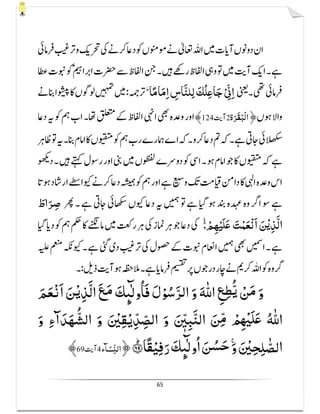 ان دونوں آیات میں اللہ تعالیٰ نے مومنوں کو دعا کرنے کی تحریک و ترغیب فرمائی
ہے۔ ایک آیت میں تو وہی الفاظ رکھے ہیں۔ جن الفاظ سے حضرت ابراہیمؑ کو نبوت عطا
فرمائی تھی۔ یعنی اِنِّیْ جَاعِلُكَ لِلنَّاسِ اِمَامًا ؕ ترجمہ: میں تمہیں لوگوں کا پیشوا بنانے
والا ہوں ﴿اَلْبَقَرَۃُ 2 آیت 124﴾ اور وعدہ بھی انہی الفاظ کے متعلق تھا۔ اب ہم کو یہ دعا
سکھلائی جاتی ہے۔ کہ تم دعا کرو۔ کہ اے ہمارے رب ہم کو متقیوں کا امام بنا۔ یہ تو ظاہر
ہے کہ متقیوں کا جو امام ہو۔ اسی کو دوسرے لفظوں میں نبی اور رسول کہتے ہیں۔ دیکھو
اس وعدہ الٰہی کا دامن قیامت تک وسیع ہے اور ہم کو ہمیشہ دعا کرنے کیلئے ارشاد ہوتا
ہے سو اگر وہ عہدہ بند ہو گیا ہے تو ہمیں یہ دعا کیوں سکھائی جاتی ہے۔ پھر۔ صِرَاطَ
الَّذِیْنَ اَنْعَمْتَ عَلَیْهِمْ ۙ کی دعا جو نماز کی ہر رکعت میں مانگنے کا حکم ہم کو دیا گیا
ہے۔ اسمیں بھی ہمیں انعام نبوت کے حصول کی ترغیب دی گئی ہے۔ کیونکہ منعم علیہ
گروہ کو اللہ کریم نے چار درجوں پر تقسیم فرمایا ہے۔ ملاحظہ ہو آیت ذیل:۔
وَ مَنْ یُّطِعِ اللّٰهَ وَ الرَّسُوْلَ فَاُولٰٓىِٕكَ مَعَ الَّذِیْنَ اَنْعَمَ
اللّٰهُ عَلَیْهِمْ مِّنَ النَّبِیّٖنَ وَ الصِّدِّیْقِیْنَ وَ الشُّهَدَآءِ وَ
الصّٰلِحِیْنَ ۚ وَ حَسُنَ اُولٰٓىِٕكَ رَفِیْقًا ﴿اَلنِّسَآءُ 4 آیت 69﴾
65